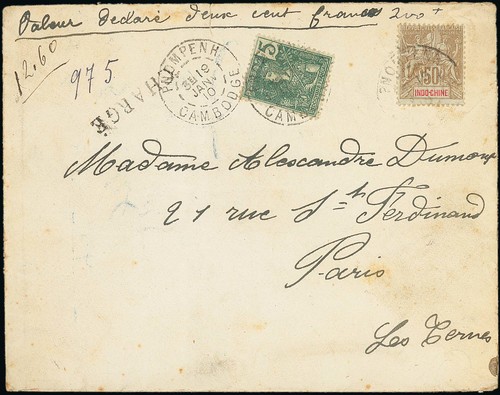 Valeur declaré deux cent francs 200 +
12,60
975
CHARGÉ
PNOMPENH
5E/19
JANV
10
CAMBODGE
5
CAM
50
INDO-CHINE
PNOM
Madame Alexandre Dumoux
21 rue St Ferdinand
Paris
Les Ternes